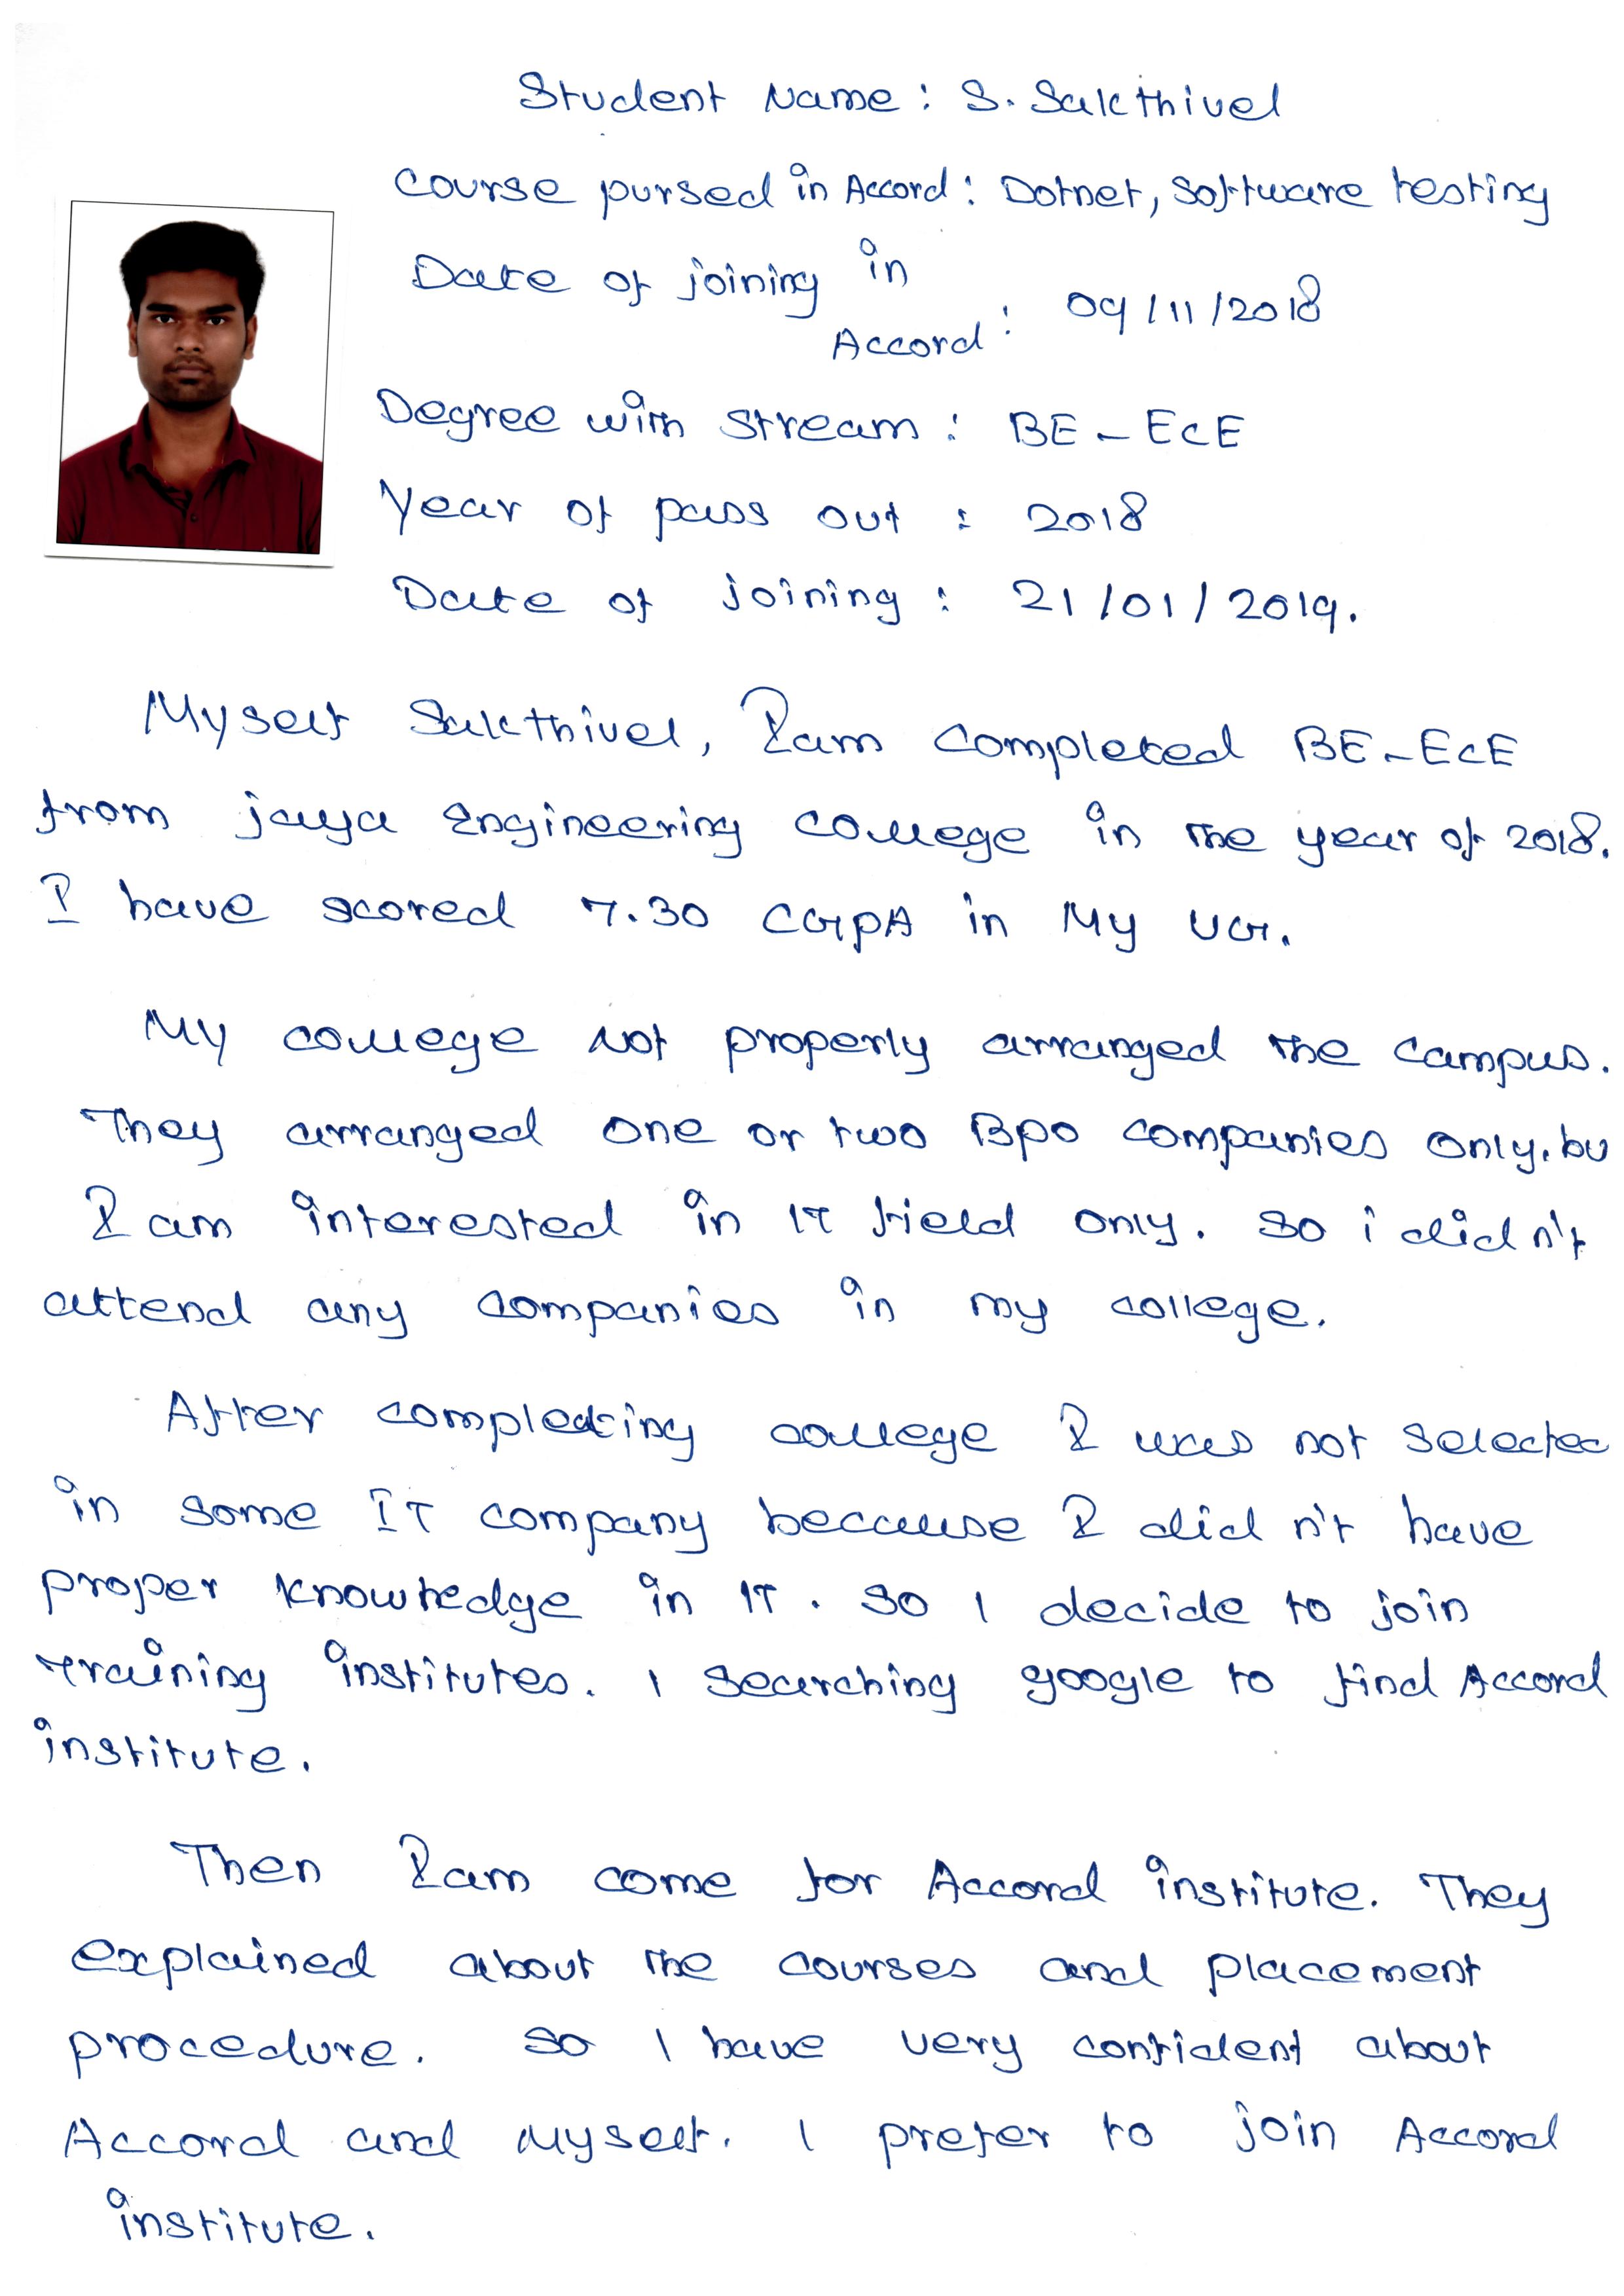 Student Name : S. Sakthivel
Course pursed in Accord : Dotnet, Software testing
Date of joining in
Accord : 09/11/2018
Degree with stream : BE - ECE
Year of pass out : 2018
Date of joining : 21/01/2019.
Myself Sakthivel, I am completed BE-ECE
from jaya Engineering college in the year of 2018.
I have scored 7.30 CGPA in My UG.
My college not properly arranged the campus.
They arranged one or two Bpo companies only. bu
I am interested in IT field only. So i did n't
attend any companies in my college.
After completing college I was not selected
in some IT company because I did n't have
proper knowledge in IT. So I decide to join
training institutes. I searching google to find Accord
institute.
Then I am come for Accord institute. They
explained about the courses and placement
procedure. So I have very confident about
Accord and Myself. I prefer to join Accord
institute.